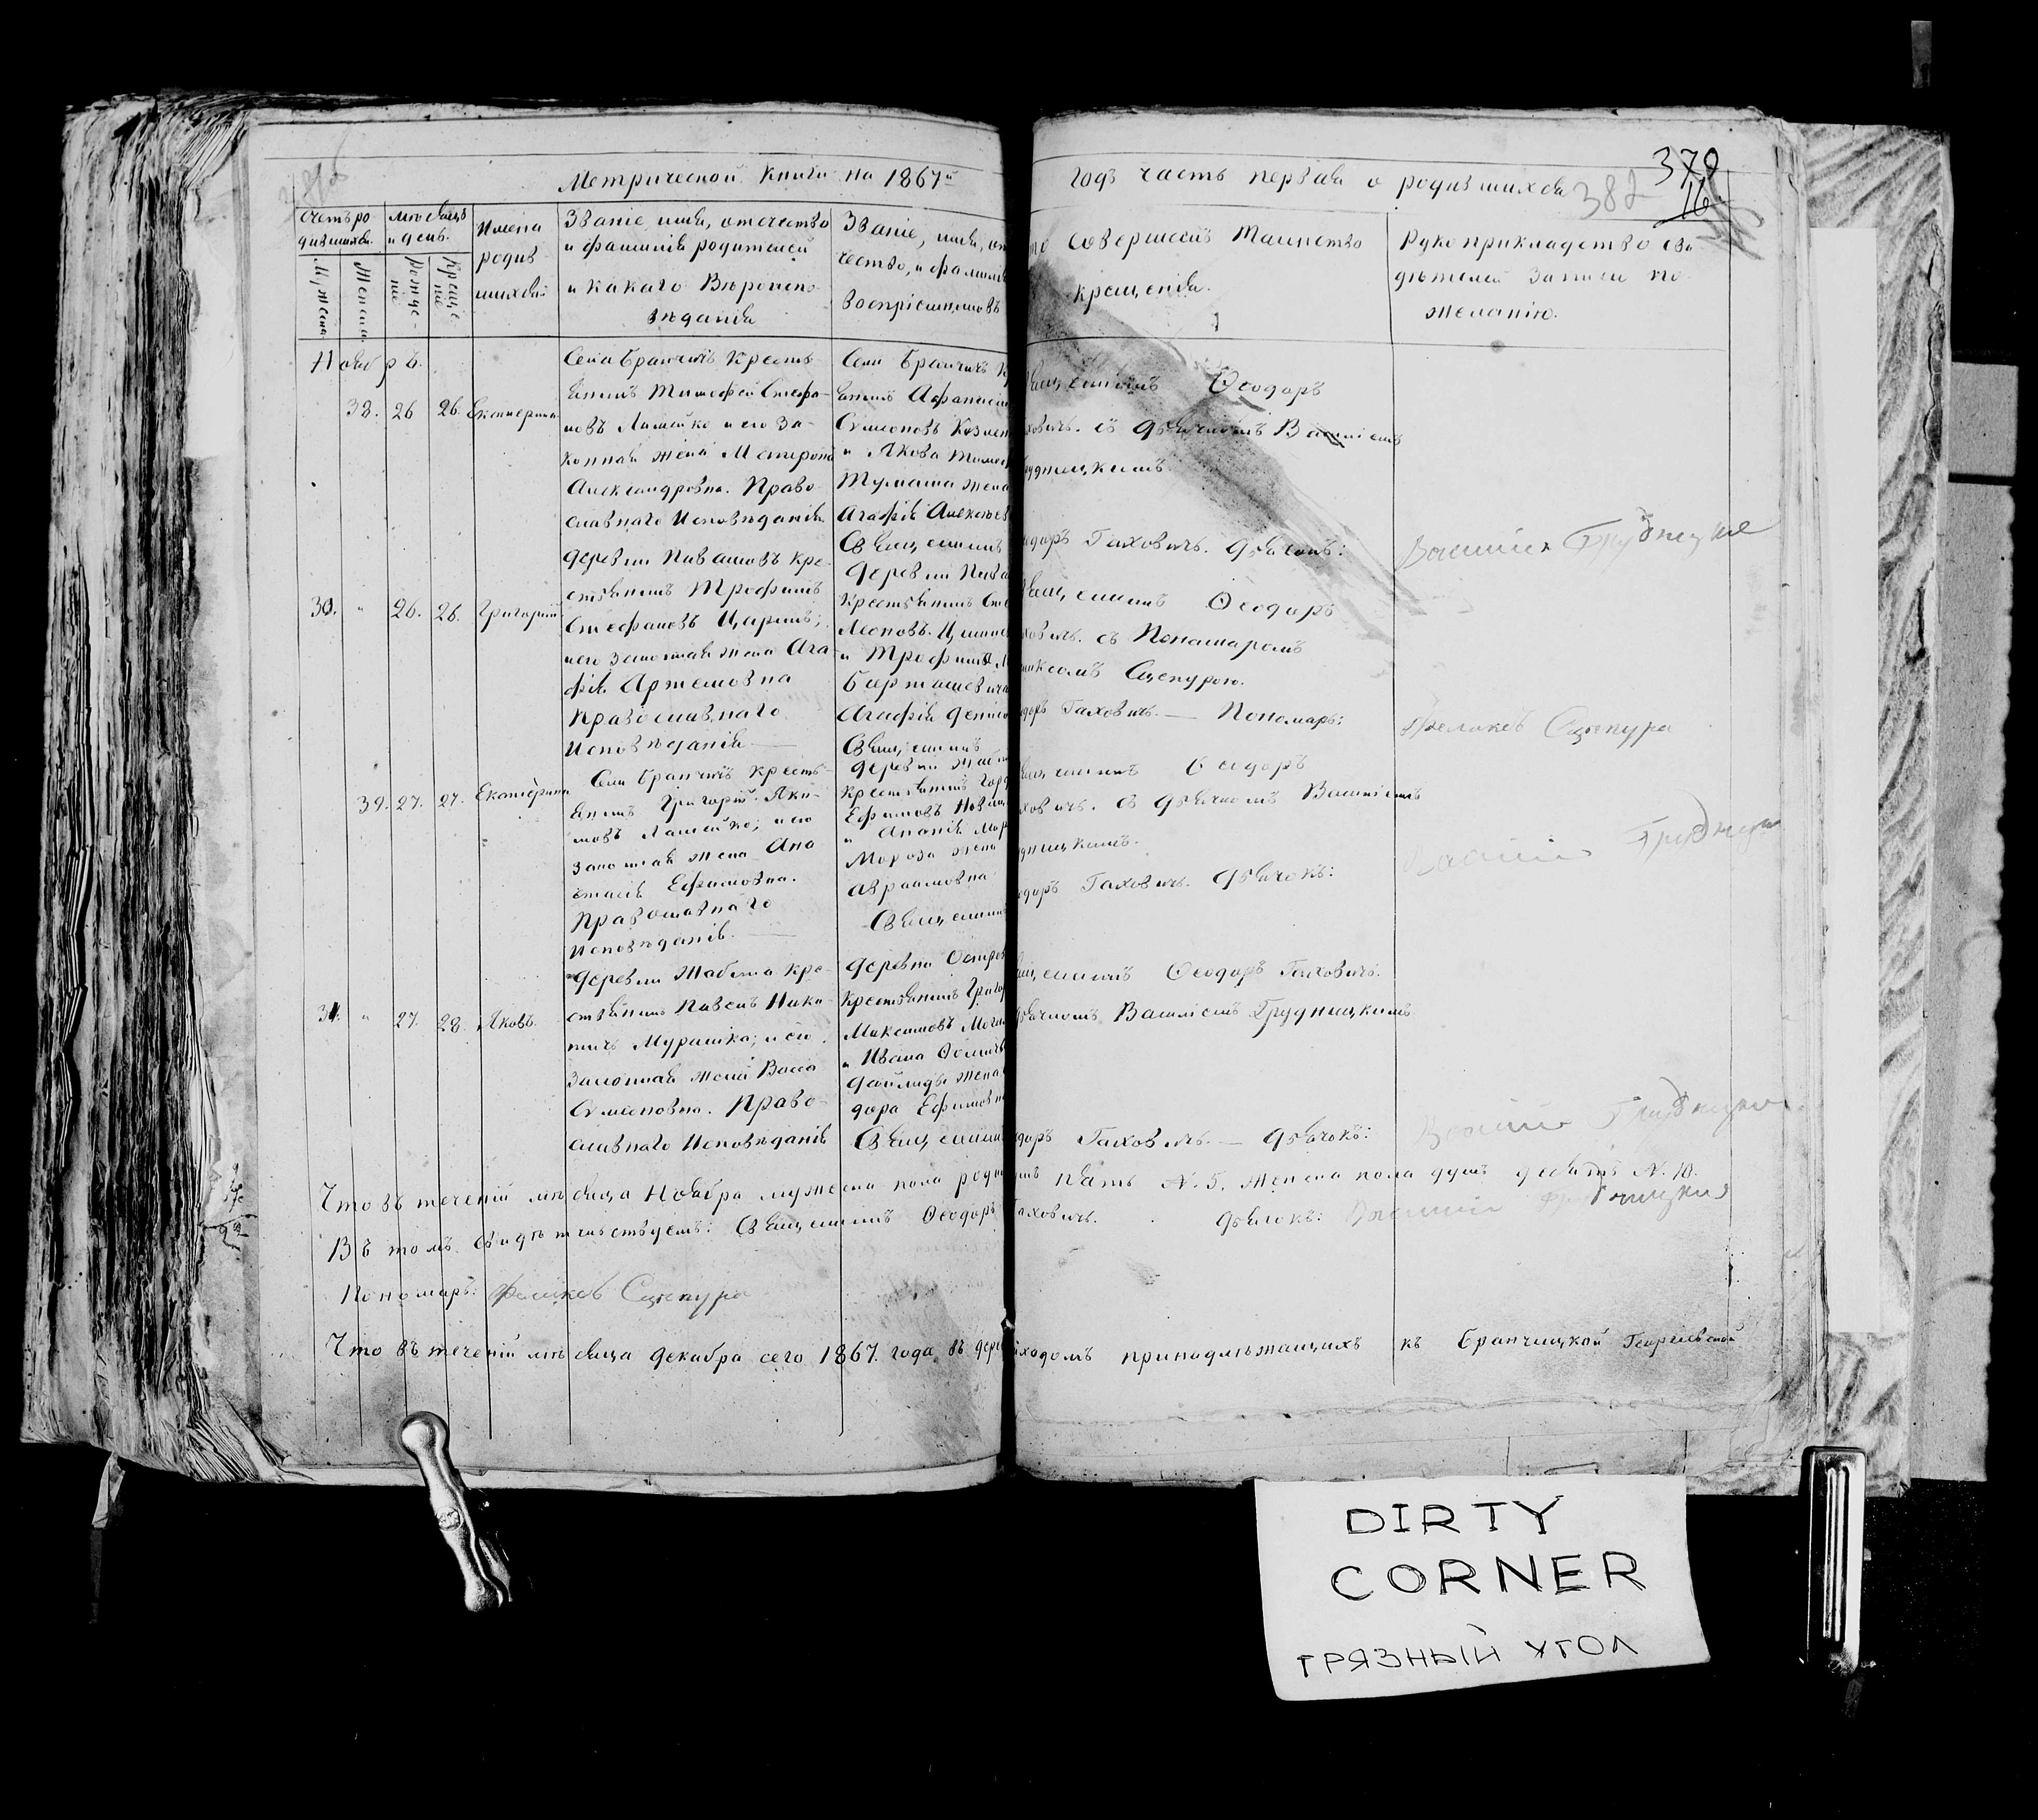 Метрической книги на 1867й
годъ часть первая о родившихся
382
379
16
Счетъ ро
дившихся.
Мужеска
Женска
Мѣсяцъ
и день.
Рожде-
нія
Креще-
нія
Имена
родив
шихся
Званіе, имя, отечество
и фамилія родителей
и какаго Вѣроиспо-
вѣданія
Званіе, имя, от
чество, и фамилія
воспріемниковъ
то совершалъ Таинство
крещенія.
Рукоприкладство сви
дѣтелей записи по
желанію.
Ноябръ.
38. 26 26. Екатерина
Села Бранчичъ Кресть
янинъ Тимофей Стефа-
новъ Лашейко и его За-
конная жена Матрона
Александровна. Право-
славнаго Исповѣданія
Села Бранчичъ К
янинъ Афанасій
Сѵмеоновъ
и Якова
жена
Агафія Алексѣев
Священникъ
вященникъ Ѳеодоръ
ховичъ. съ Дьячкомъ Василіемъ
рудницкимъ
одоръ Гаховичъ. Дьячокъ:
Василій Грудницкій
30. " 26. 26. Григорій
Деревни Пивашовъ Кре-
стьянинъ Трофимъ
Стефановъ Царикъ;
и его Законная жена Ага
фія Артемовна
Православнаго
Исповѣданія —
Деревни Пива
Крестьянинъ
Леоновъ.
и Трофима
Агафія Денисо
Священникъ
вященникъ Ѳеодоръ
ховичъ. съ Пономаромъ
ликсомъ Сцепурою.
одоръ Гаховичъ. — Пономарь:
Феликсъ Сцепура
39. 27. 27. Екатерина
Села Бранчичъ Кресть-
янинъ Григорій Яки-
мовъ Лашейко; и его
Законная жена Ана
стасія Ефимовна.
Православнаго
Исповѣданія. —
Деревни
Крестьянинъ
Ефимовъ
и Ананія
Мороза жена
Авраамовна
Священникъ
вященникъ Ѳеодоръ
ховичъ. съ Дьячкомъ Василіемъ
удницкимъ.
одоръ Гаховичъ. Дьячокъ:
Василій Грудницкій
31. " 27. 28. Яковъ.
Деревни Жабина Кре-
стьянинъ Павелъ Ники-
тичъ Мурашка; и его
Законная жена Васса
Сѵмеоновна. Право-
славнаго Исповѣданія
Деревни Остров
Крестьянинъ Григор
Максимовъ
и Ивана
жена
дора Ефимовна
Священник
ященникъ Ѳеодоръ Гаховичъ.
Дьячкомъ Василіемъ Грудницкимъ
одоръ Гаховичъ. — Дьячокъ:
Василій Грудницкій
Что въ теченій мѣсяца Ноября мужеска пола родил шъ пять N. 5. Женска пола душъ десять N. 10.
Въ томъ свидѣтельствуемъ: Священникъ Ѳеодоръ Гаховичъ. Дьячокъ: Василій Грудницкій
Пономарь: Феликсъ Сцепура
Что въ теченій мѣсяца Декабра сего 1867. года въ дере иходомъ принадлѣжащихъ къ Бранчицкой Георгіевской
DIRTY
CORNER
ГРЯЗНЫЙ УГОЛ